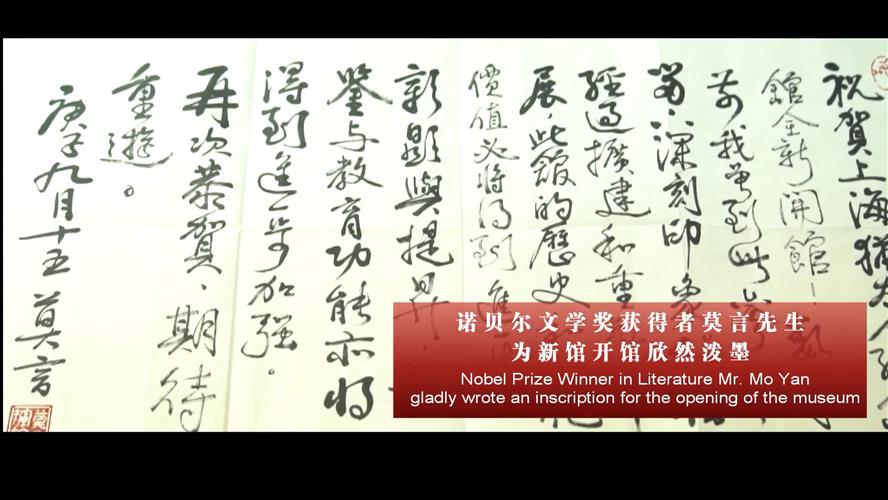 祝賀上海猶太人
館全新開館！數
前我曾到此
留下深刻印象
經過擴建和重
展，此館的歷史
價值必將得到進
彰顯與提昇，
鑒与教育功能亦將
得到進一步加强。
再次恭賀、期待
重遊。
庚子九月十五 莫言
诺贝尔文学奖获得者莫言先生
为新馆开馆欣然泼墨
Nobel Prize Winner in Literature Mr. Mo Yan
gladly wrote an inscription for the opening of the museum